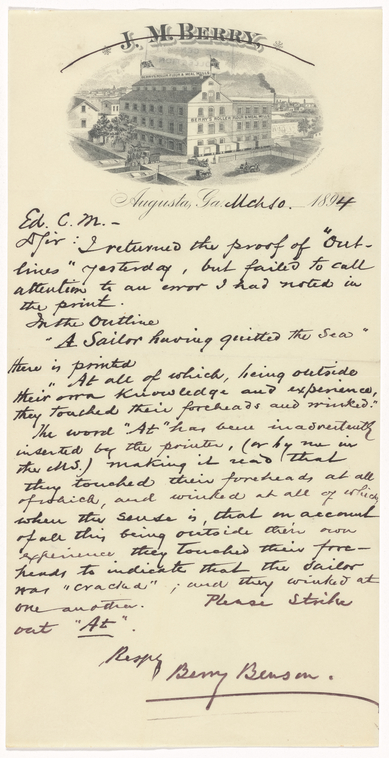 J. M. BERRY,
BERRY'S ROLLER FLOUR & MEAL MILLS
Augusta, Ga. Mch 10. 1894
Ed. C. M. -
D Sir: I returned the proof of "Out-
lines" yesterday, but failed to call
attention to an error I had noted in
the print.
In the Outline
"A Sailor having quitted the Sea"
there is printed
"At all of which, being outside
their own knowledge and experience,
they touched their foreheads and winked."
The word "At" has been inadvertently
inserted by the printer, (or by me in
the MS.) making it read that
they touched their foreheads at all
of which, and winked at all of which
when the sense is, that on account
of all this being outside their own
experience they touched their fore-
heads to indicate that the Sailor
was "cracked"; and they winked at
one another. Please Strike
out "At".
Respy
Berry Benson.